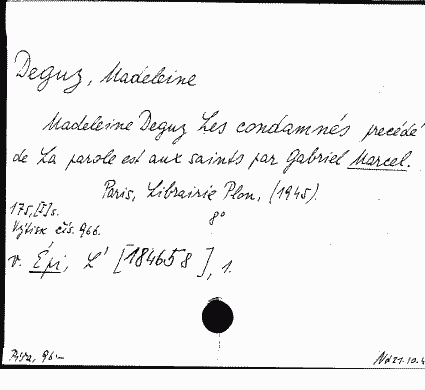 Deguz, Madeleine
Madeleine Deguz Les condamnés precédé
de La parole est aux saints par Gabriel Marcel.
Paris, Librairie Plon, (1945).
175,[I]s. 8°
Výtisk čís. 966.
v. Épi, L' [184658], 1.
96.- Nd 21.10.4